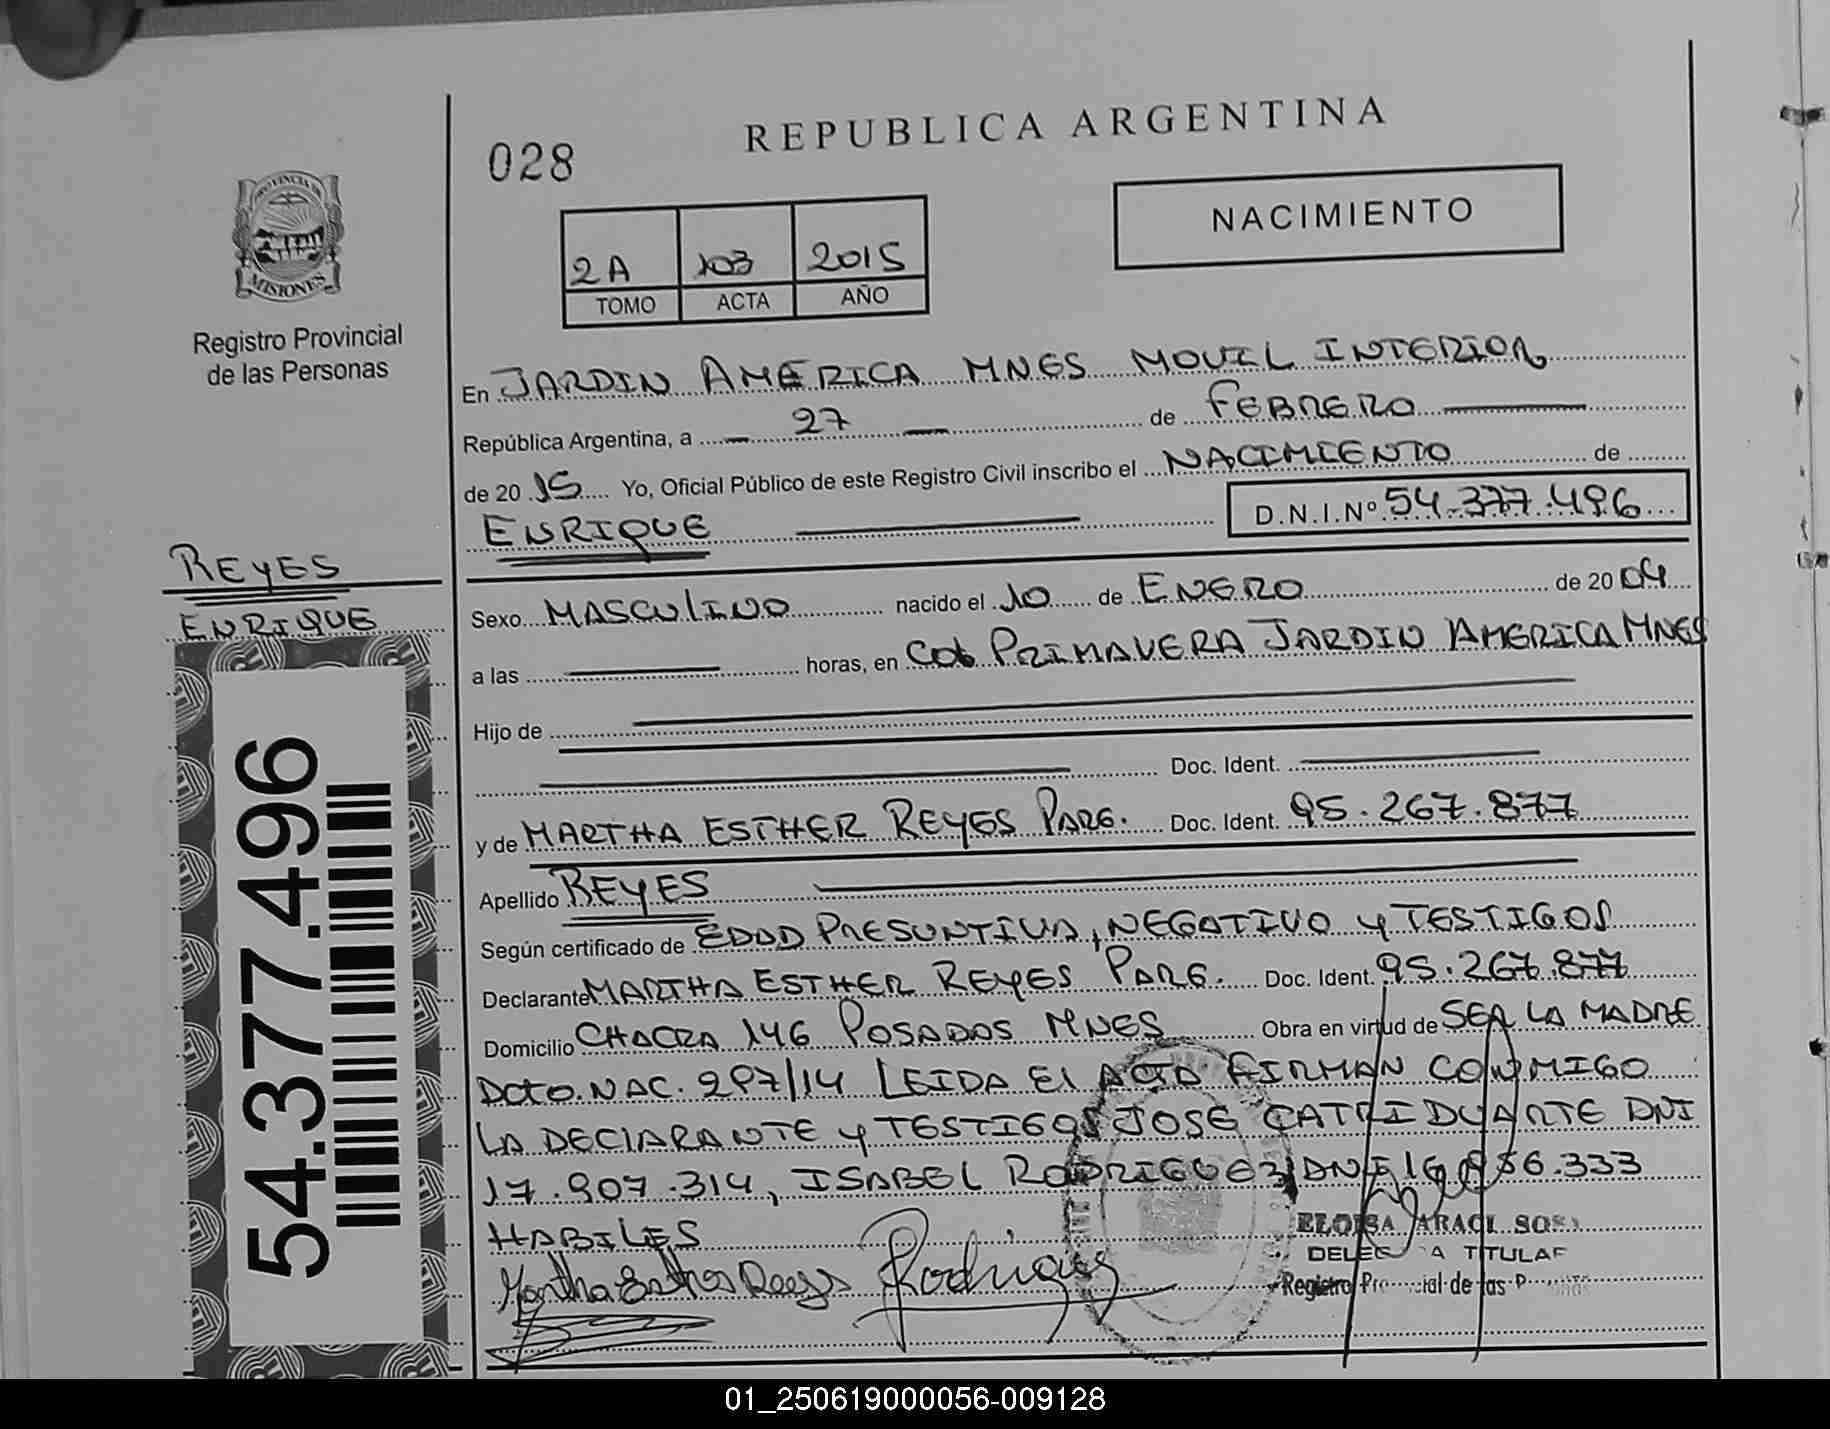 REPUBLICA ARGENTINA
028
NACIMIENTO
2A 103 2015
TOMO ACTA AÑO
PROVINCIA DE
MISIONES
Registro Provincial
de las Personas
En JARDIN AMERICA MNES MOVIL INTERIOR
República Argentina, a 27 de FEBRERO
de 20 15 Yo, Oficial Público de este Registro Civil inscribo el NACIMIENTO de
ENRIQUE D.N.I.Nº 54.377.496
REYES
ENRIQUE
54.377.496
Sexo MASCULINO nacido el 10 de ENERO de 20 04
a las horas, en Col PRIMAVERA JARDIN AMERICA MNES
Hijo de
Doc. Ident.
y de MARTHA ESTHER REYES PARG. Doc. Ident. 95.267.877
Apellido REYES
Según certificado de EDAD PRESUNTIVA, NEGATIVO y TESTIGOS
Declarante MARTHA ESTHER REYES PARG. Doc. Ident. 95.267.877
Domicilio CHACRA 146 POSADAS MNES Obra en virtud de SER LA MADRE
Dcto. NAC. 297/14 LEIDA El ACTA FIRMAN CONMIGO
LA DEClARANTE y TESTIGOS JOSE DUARTE DNI
17.907.314, ISABEL RODRIGUEZ DNI
HABILES
Martha Esther Reyes Rodriguez
ELOISA ARACI SOSA
DELEG A TITULAR
Registro Pro cial de las P
01_250619000056-009128